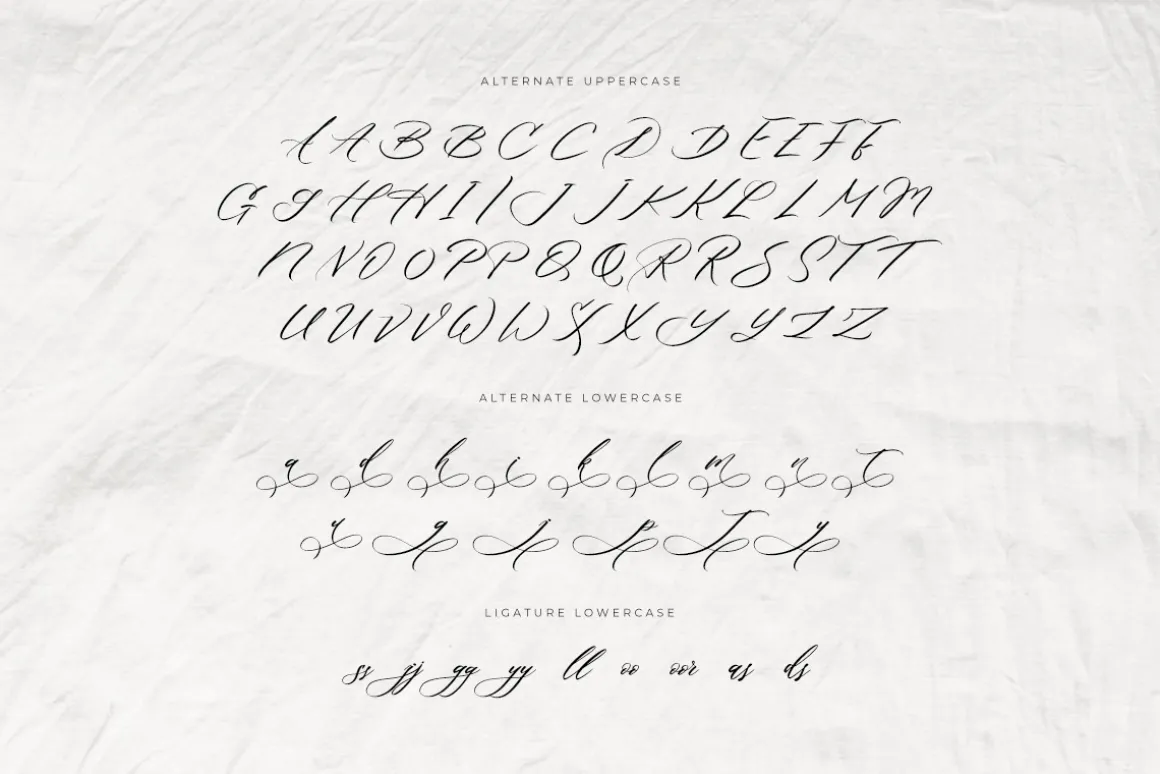 ALTERNATE UPPERCASE
A A B B C C D D E E F F
G G H H I I J J K K L L M M
N N O O P P Q Q R R S S T T
U U V V W W X X Y Y Z Z
ALTERNATE LOWERCASE
a d h i k l m n t
u g j p T y
LIGATURE LOWERCASE
ss jj gg yy ll oo oor as ds